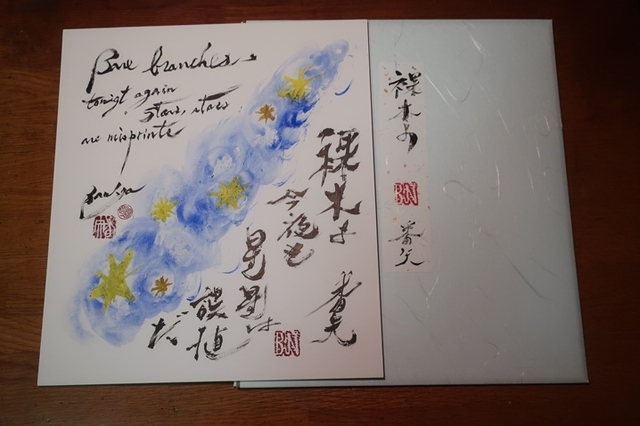 Bare branches
tonigt again
stars, stars
are misprints
裸木よ
今夜も
星星は
誤植
だ
番矢
BAN
裸木よ
BAN
番矢